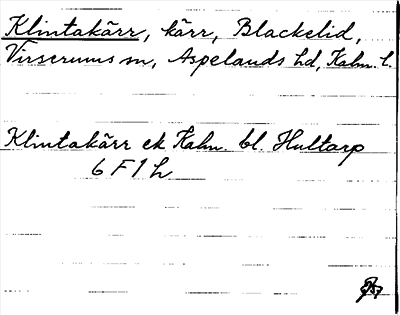 Klintakärr, kärr, Blackelid,
Virserums sn, Aspelands hd, Kalm. l.
Klintakärr ek Kalm. bl. Hultarp
6 F 1 h